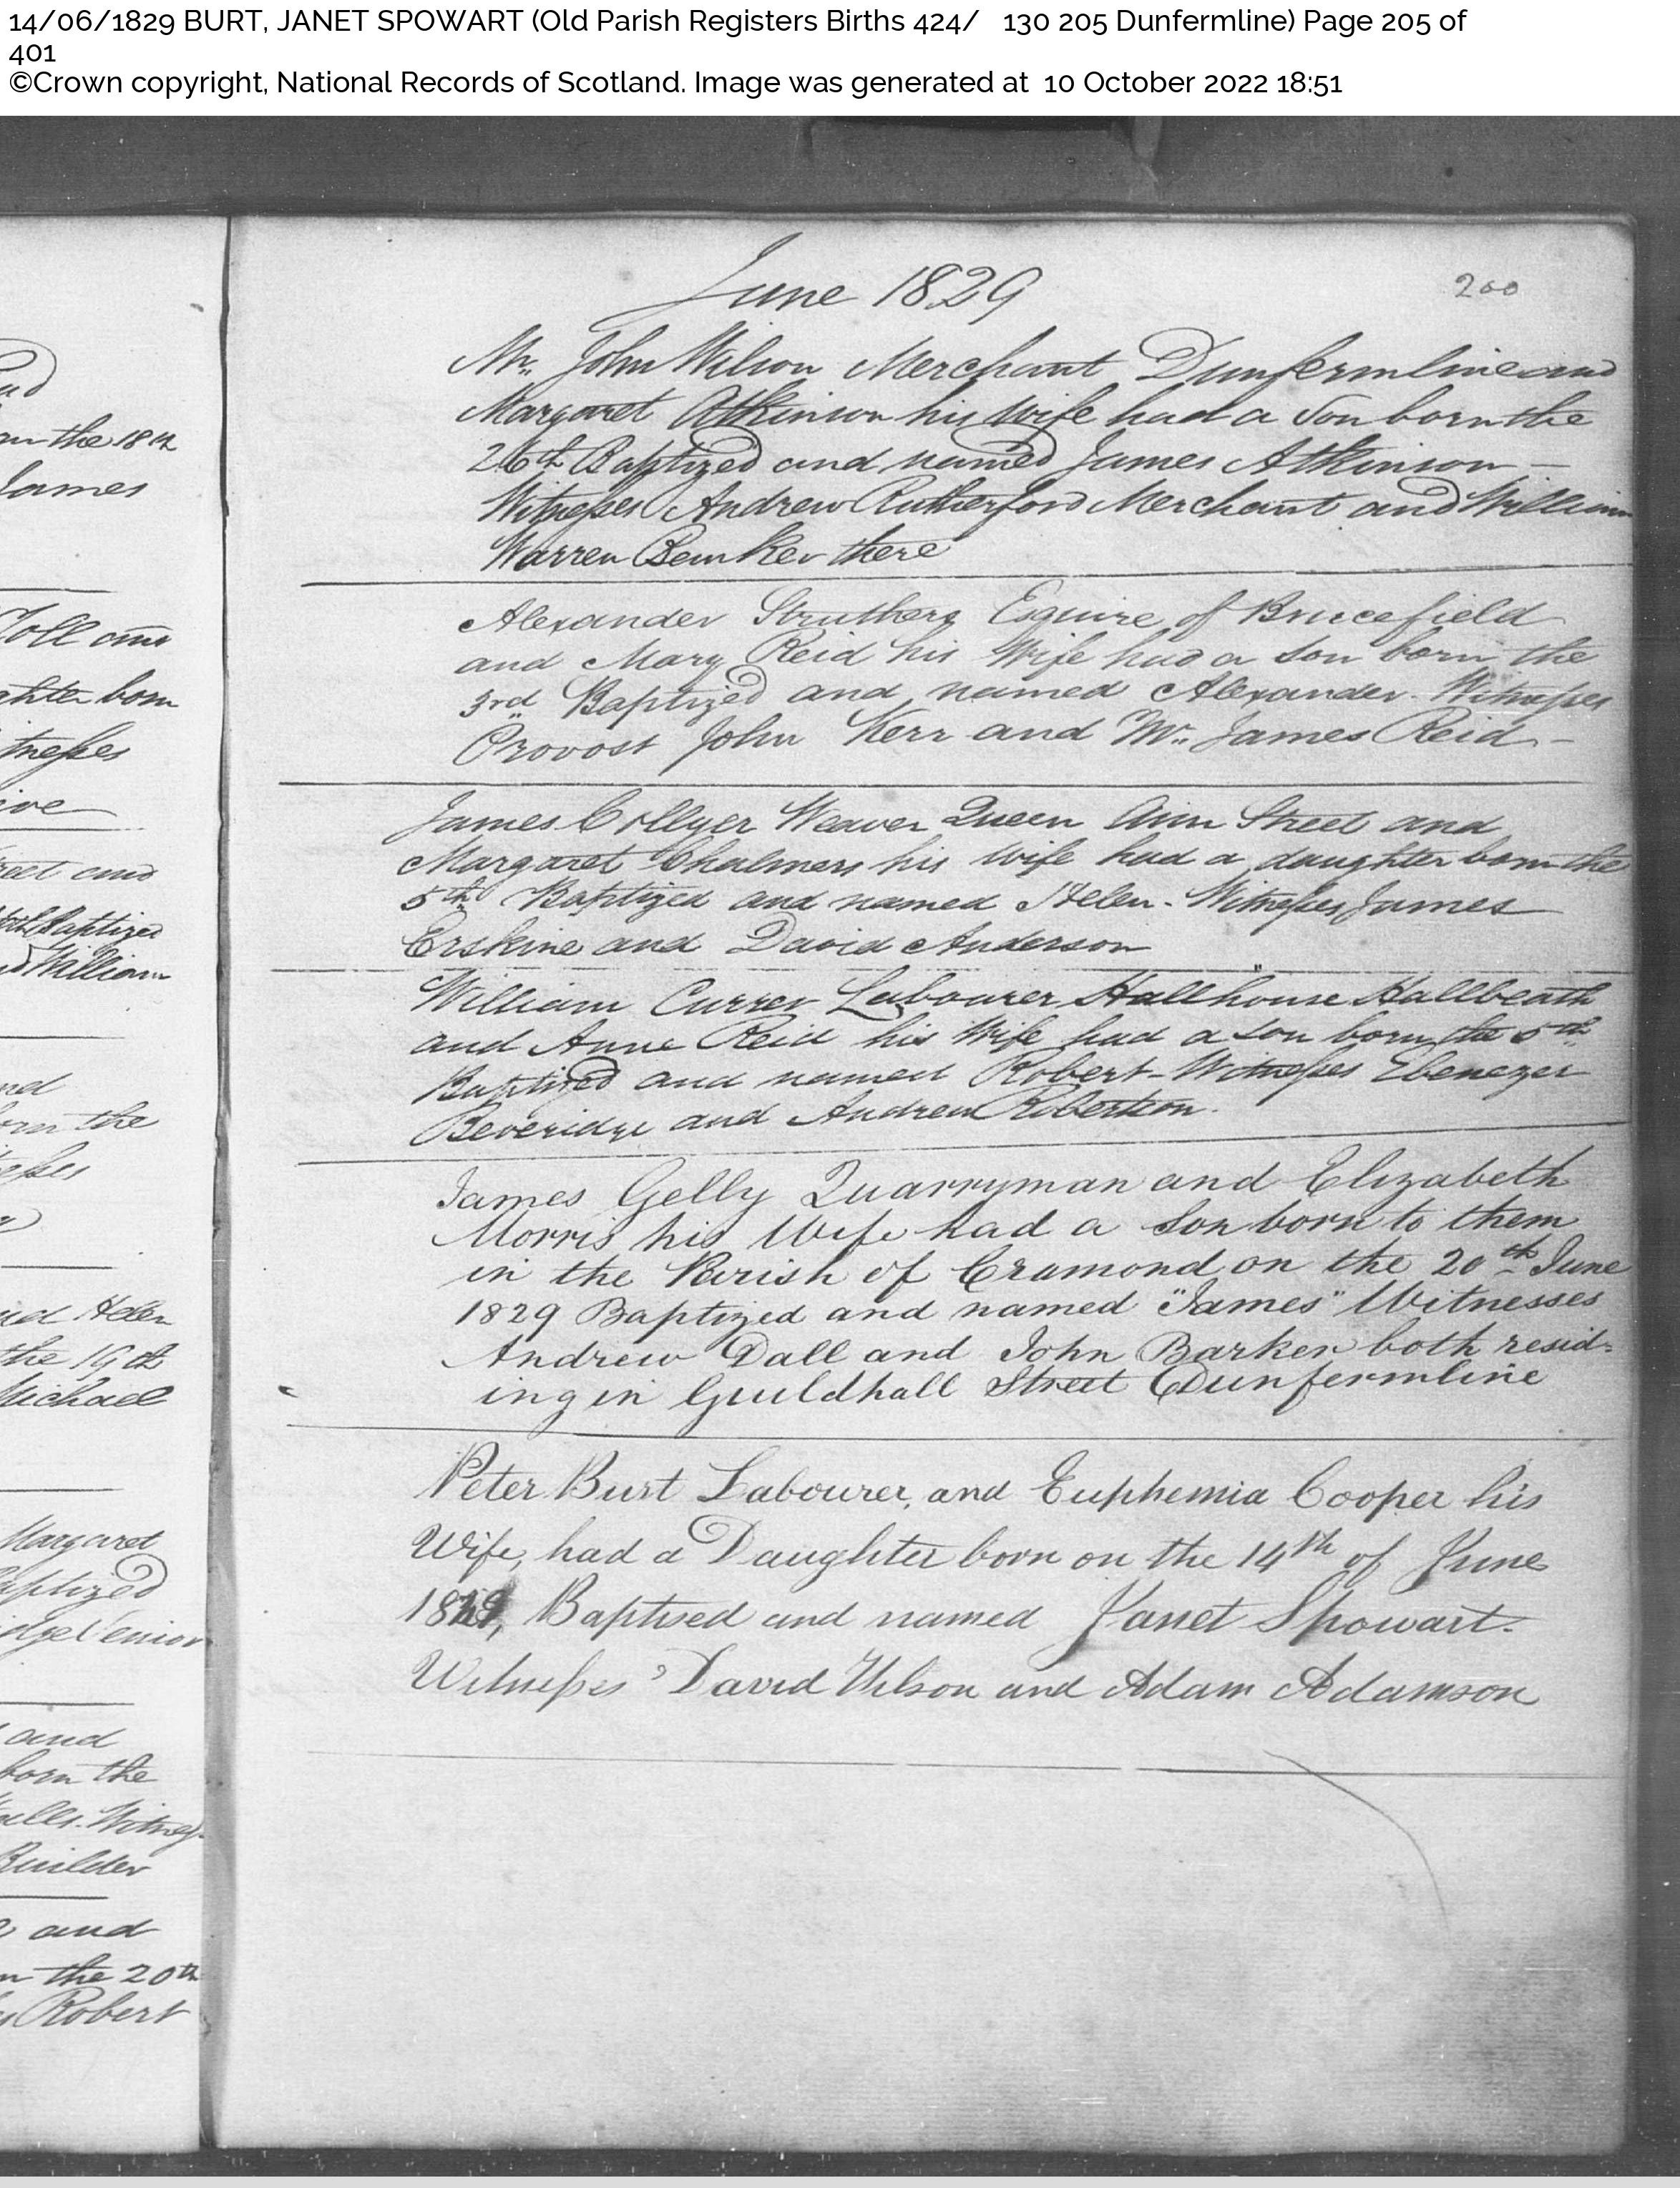 14/06/1829 BURT, JANET SPOWART (Old Parish Registers Births 424/ 130 205 Dunfermline) Page 205 of
401
©Crown copyright, National Records of Scotland. Image was generated at 10 October 2022 18:51
June 1829
200
Mr. John Wilson Merchant Dunfermline and
Margaret Atkinson his Wife had a Son born the
26th Baptized and named James Atkinson –
Witnesses Andrew Rutherford Merchant and William
Warren Banker there
Alexander Struthers Esquire of Brucefield
and Mary Reid his Wife had a Son born the
3rd Baptized and named Alexander. Witnesses
Provost John Kerr and Mr. James Reid –
James Collyer Weaver Queen Ann Street and
Margaret Chalmers his Wife had a daughter born the
5th Baptized and named Helen. Witnesses James
Erskine and David Anderson
William Currer Labourer Hallhouse Hallbeath
and Anne Reid his Wife had a Son born the 5th
Baptized and named Robert – Witnesses Ebenezer
Beveridge and Andrew Robertson.
James Gelly Quarryman and Elizabeth
Morris his Wife had a Son born to them
in the Parish of Cramond on the 20th June
1829 Baptized and named "James" Witnesses
Andrew Dall and John Barker both resid-
ing in Guildhall Street Dunfermline
Peter Burt Labourer, and Euphemia Cooper his
Wife, had a Daughter born on the 14th of June
1829, Baptised and named Janet Spowart.
Witnesses David Wilson and Adam Adamson
on the 18th
James
Coll and
daughter born
Witnesses
Street and
Baptized
and William
and
born the
Witnesses
and Helen
the 19th
Michael
Margaret
Baptized
Senior
and
born the
Witness
Builder
and
on the 20th
Robert